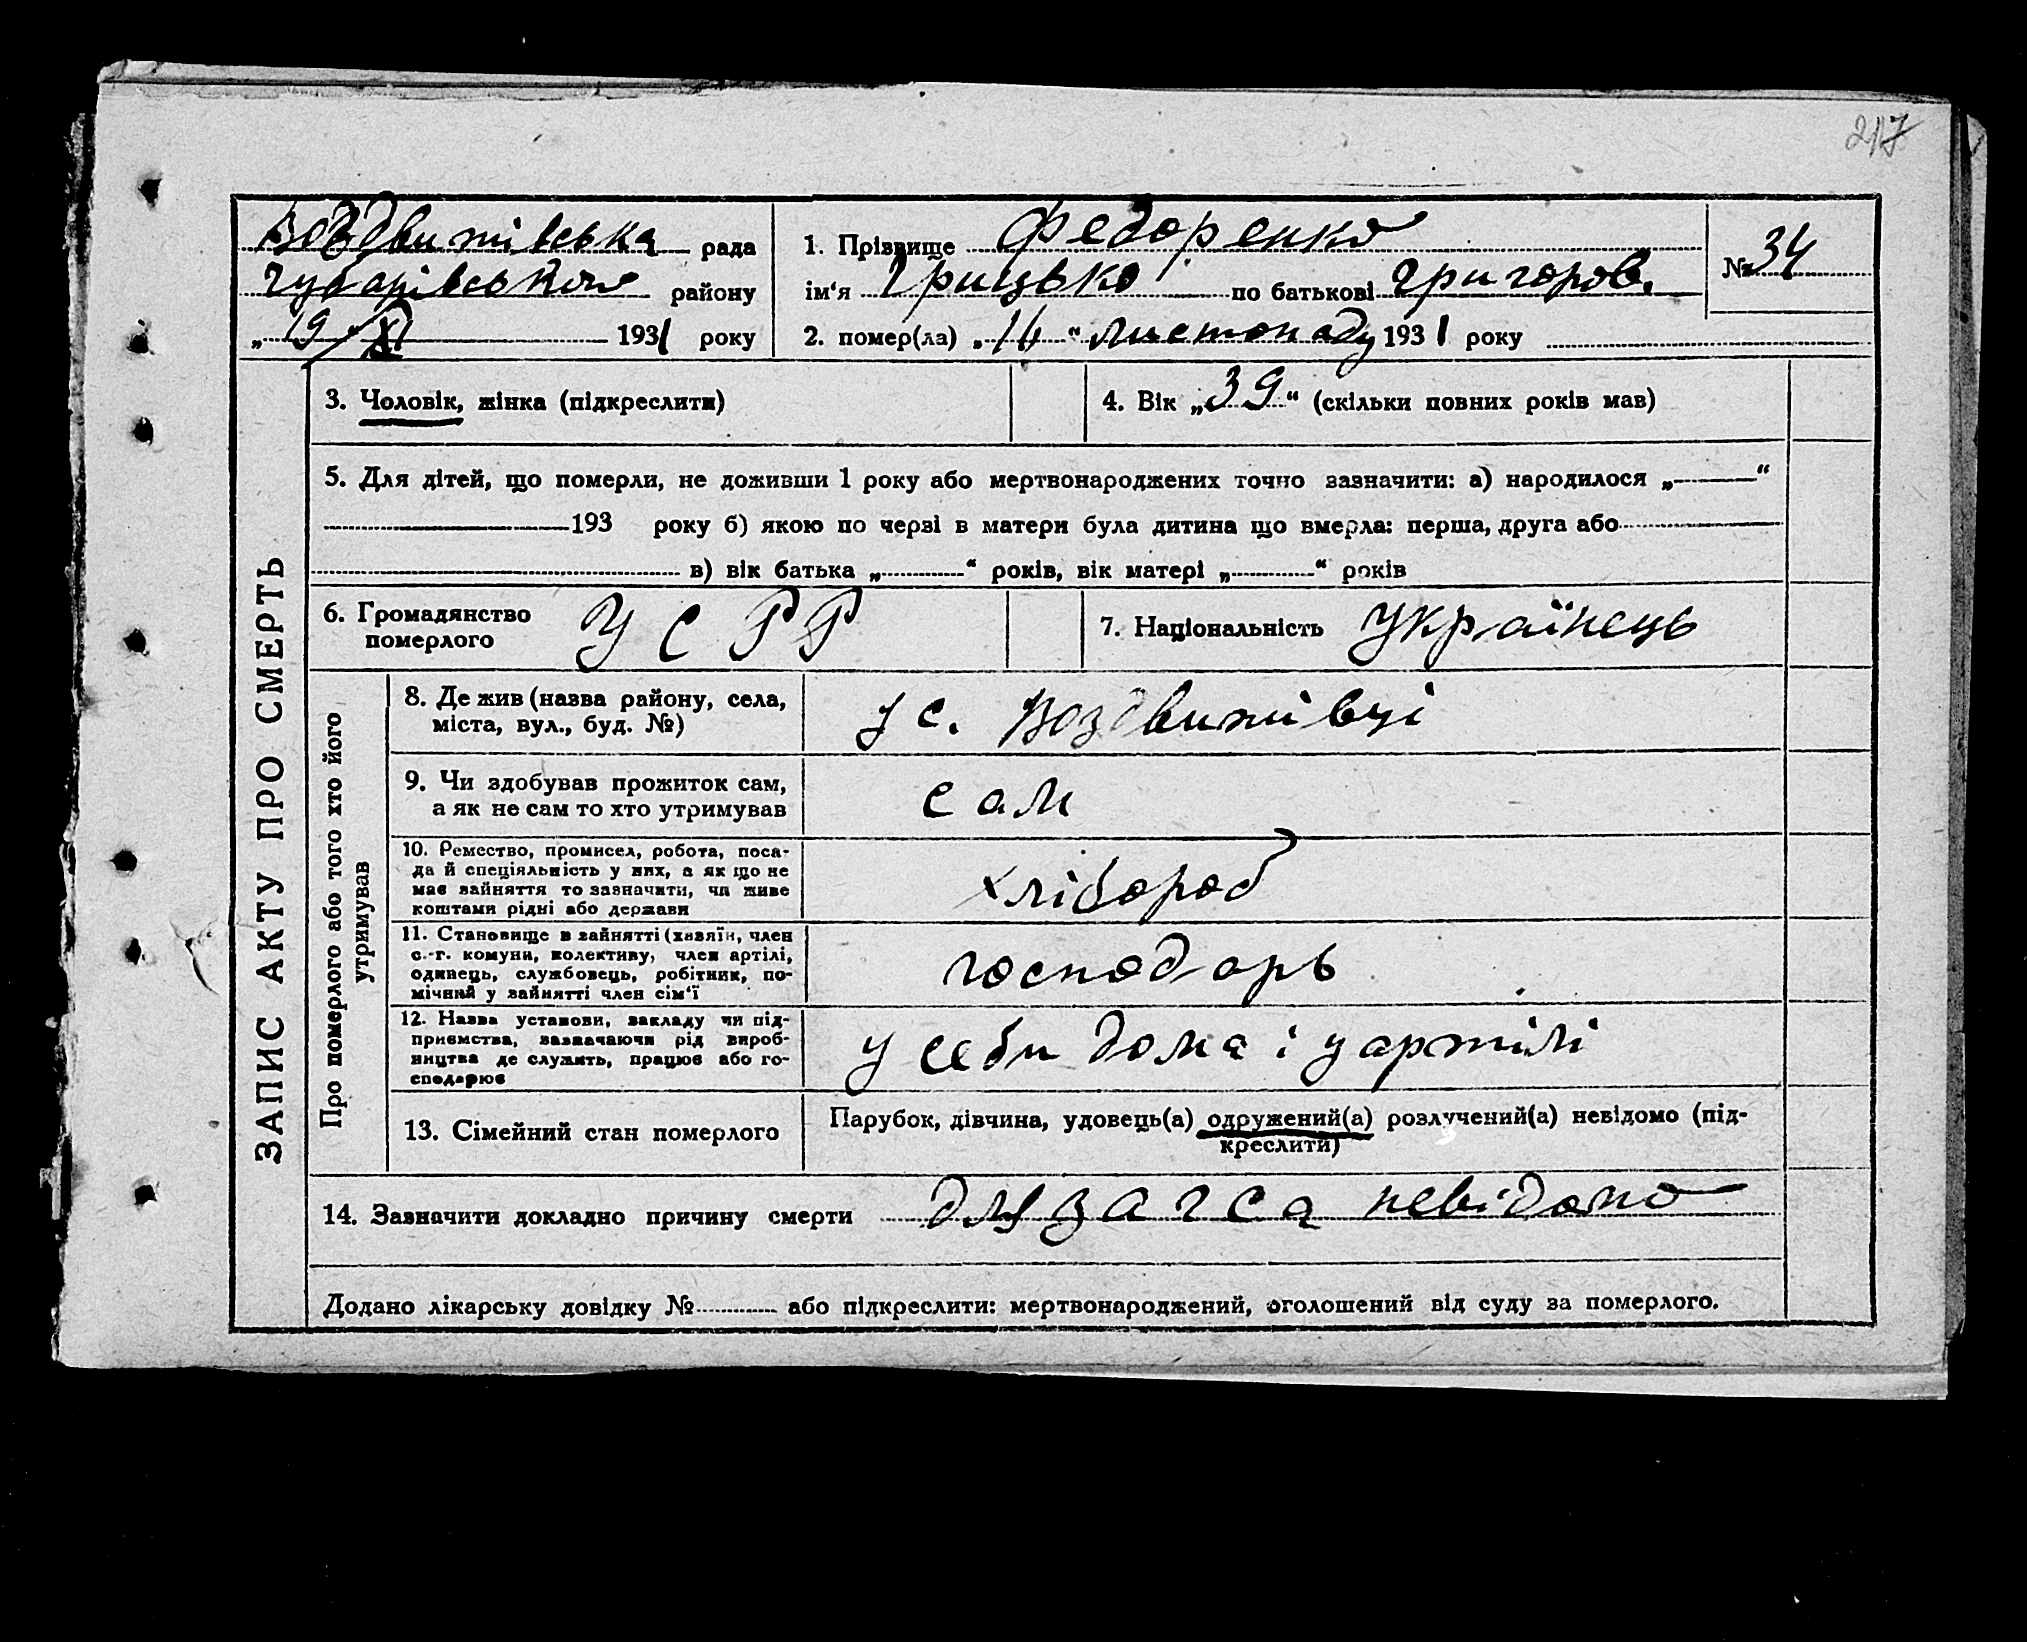 217
Воздвижівська рада
Чубарівського району
„19/XI 1931 року
1. Прізвище Федоренко
ім‘я Грицько по батькові Григоров.
2. помер(ла) „16“ листопаду 1931 року
№ 34
ЗАПИС АКТУ ПРО СМЕРТЬ
3. Чоловік, жінка (підкреслити)
4. Вік „39“ (скільки повних років мав)
5. Для дітей, що померли, не доживши 1 року або мертвонароджених точно зазначити: а) народилося „ “
193 року б) якою по черзі в матери була дитина що вмерла: перша, друга або
в) вік батька „ “ років, вік матері „ “ років
6. Громадянство
померлого
УСРР
7. Національність Українець
Про померлого або того хто його
утримував
8. Де жив (назва району, села,
міста, вул., буд. №)
у с. Воздвижівці
9. Чи здобував прожиток сам,
а як не сам то хто утримував
сам
10. Ремество, промисел, робота, поса-
да й спеціяльність у них, а як що не
має зайняття то зазначити, чи живе
коштами рідні або держави
хлібороб
11. Становище в зайнятті (хазяїн, член
с.-г. комуни, колективу, член артілі,
одинець, службовець, робітник, по-
мічний у зайнятті член сім‘ї
господарь
12. Назва установи, закладу чи під-
приємства, зазначаючи рід вироб-
ництва де служить, працює або го-
сподарює
у себи дома і у артілі
13. Сімейний стан померлого
Парубок, дівчина, удовець(а) одружений(а) розлучений(а) невідомо (під-
креслити)
14. Зазначити докладно причину смерти для загса невідомо
Додано лікарську довідку № або підкреслити: мертвонароджений, оголошений від суду за померлого.